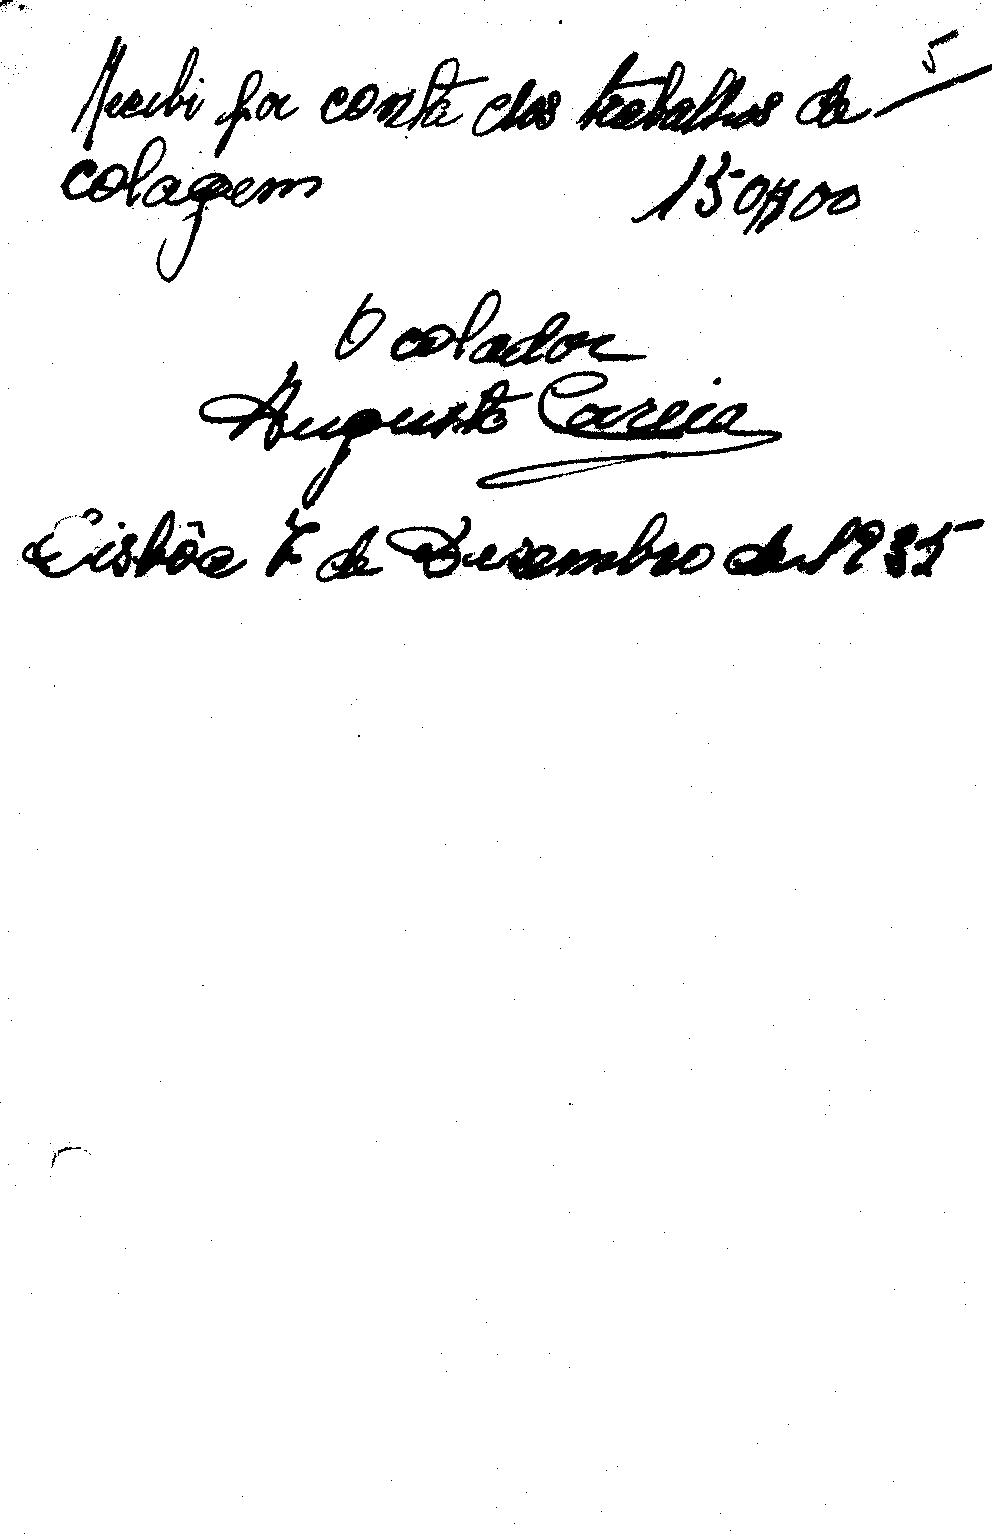 5
Recebi por conta dos trabalhos de
colagem 150$00
O colador
Augusto Correia
Lisbôa 7 de Dezembro de 1935